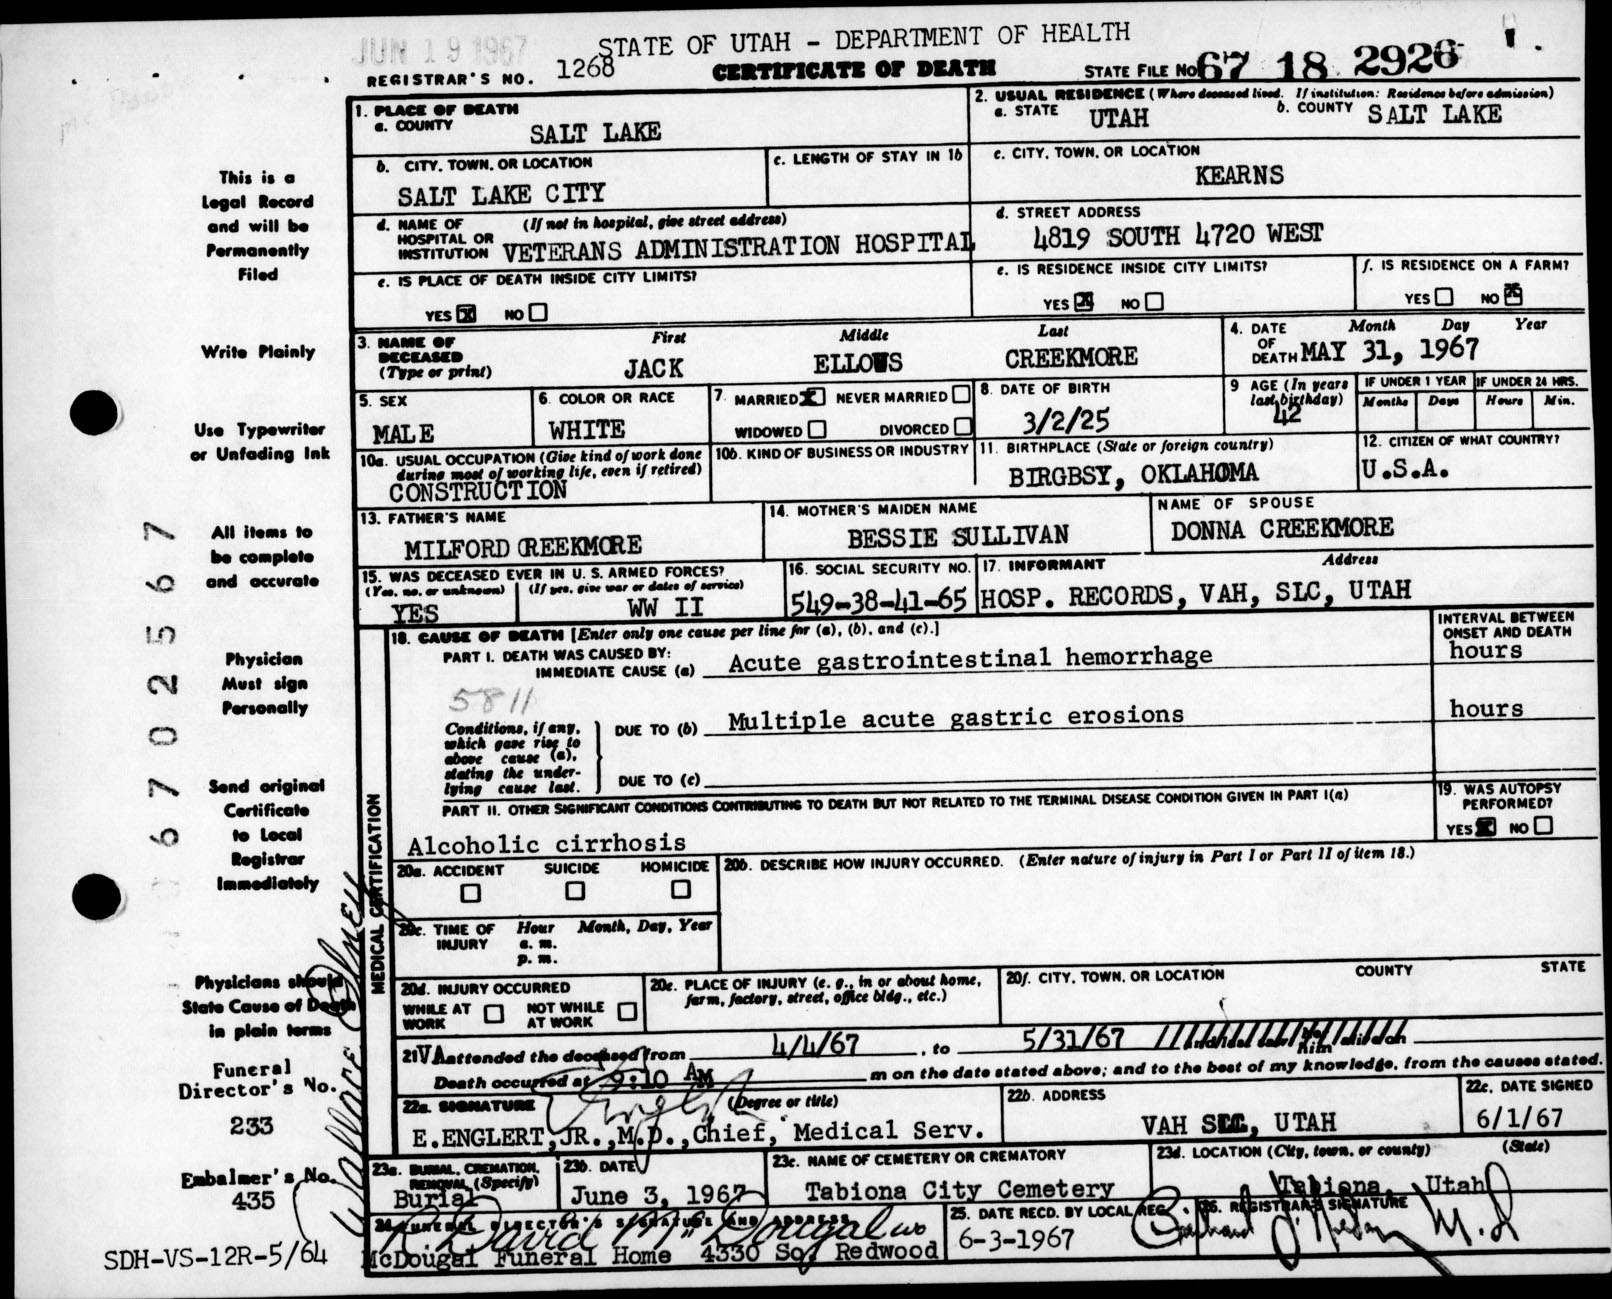 JUN 19 1967
STATE OF UTAH - DEPARTMENT OF HEALTH
REGISTRAR'S NO. 1268
CERTIFICATE OF DEATH
STATE FILE NO. 67 18 2926
1. PLACE OF DEATH
a. COUNTY
SALT LAKE
2. USUAL RESIDENCE (Where deceased lived. If institution: Residence before admission)
a. STATE UTAH
b. COUNTY SALT LAKE
b. CITY, TOWN, OR LOCATION
SALT LAKE CITY
c. LENGTH OF STAY IN 1b
c. CITY, TOWN, OR LOCATION
KEARNS
d. NAME OF HOSPITAL OR INSTITUTION (If not in hospital, give street address)
VETERANS ADMINISTRATION HOSPITAL
d. STREET ADDRESS
4819 SOUTH 4720 WEST
e. IS PLACE OF DEATH INSIDE CITY LIMITS?
YES X NO
e. IS RESIDENCE INSIDE CITY LIMITS?
YES X NO
f. IS RESIDENCE ON A FARM?
YES NO X
3. NAME OF DECEASED (Type or print)
First Middle Last
JACK ELLOWS CREEKMORE
4. DATE OF DEATH
Month Day Year
MAY 31, 1967
5. SEX
MALE
6. COLOR OR RACE
WHITE
7. MARRIED X NEVER MARRIED
WIDOWED DIVORCED
8. DATE OF BIRTH
3/2/25
9 AGE (In years last birthday)
42
IF UNDER 1 YEAR
Months Days
IF UNDER 24 HRS.
Hours Min.
10a. USUAL OCCUPATION (Give kind of work done during most of working life, even if retired)
CONSTRUCTION
10b. KIND OF BUSINESS OR INDUSTRY
11. BIRTHPLACE (State or foreign country)
BIRGBSY, OKLAHOMA
12. CITIZEN OF WHAT COUNTRY?
U.S.A.
13. FATHER'S NAME
MILFORD CREEKMORE
14. MOTHER'S MAIDEN NAME
BESSIE SULLIVAN
NAME OF SPOUSE
DONNA CREEKMORE
15. WAS DECEASED EVER IN U. S. ARMED FORCES?
(Yes, no, or unknown) (If yes, give war or dates of service)
YES WW II
16. SOCIAL SECURITY NO.
549-38-41-65
17. INFORMANT Address
HOSP. RECORDS, VAH, SLC, UTAH
MEDICAL CERTIFICATION
18. CAUSE OF DEATH [Enter only one cause per line for (a), (b), and (c).]
INTERVAL BETWEEN ONSET AND DEATH
PART I. DEATH WAS CAUSED BY:
IMMEDIATE CAUSE (a) Acute gastrointestinal hemorrhage
hours
5811
Conditions, if any, which gave rise to above cause (a), stating the underlying cause last.
DUE TO (b) Multiple acute gastric erosions
hours
DUE TO (c)
PART II. OTHER SIGNIFICANT CONDITIONS CONTRIBUTING TO DEATH BUT NOT RELATED TO THE TERMINAL DISEASE CONDITION GIVEN IN PART I(a)
Alcoholic cirrhosis
19. WAS AUTOPSY PERFORMED?
YES X NO
20a. ACCIDENT SUICIDE HOMICIDE
20b. DESCRIBE HOW INJURY OCCURRED. (Enter nature of injury in Part I or Part II of item 18.)
20c. TIME OF INJURY
Hour Month, Day, Year
a. m.
p. m.
20d. INJURY OCCURRED
WHILE AT WORK NOT WHILE AT WORK
20e. PLACE OF INJURY (e. g., in or about home, farm, factory, street, office bldg., etc.)
20f. CITY, TOWN, OR LOCATION COUNTY STATE
21 VA attended the deceased from 4/4/67, to 5/31/67
Death occurred at 9:10 AM m on the date stated above; and to the best of my knowledge, from the causes stated.
22a. SIGNATURE (Degree or title)
E. ENGLERT, JR., M.D., Chief, Medical Serv.
22b. ADDRESS
VAH SLC, UTAH
22c. DATE SIGNED
6/1/67
23a. BURIAL, CREMATION, REMOVAL (Specify)
Burial
23b. DATE
June 3, 1967
23c. NAME OF CEMETERY OR CREMATORY
Tabiona City Cemetery
23d. LOCATION (City, town, or county) (State)
Tabiona, Utah
24. FUNERAL DIRECTOR'S SIGNATURE AND ADDRESS
R David McDougal
McDougal Funeral Home 4330 So. Redwood
25. DATE RECD. BY LOCAL REG.
6-3-1967
26. REGISTRAR'S SIGNATURE
M.D
This is a
Legal Record
and will be
Permanently
Filed
Write Plainly
Use Typewriter
or Unfading Ink
All items to
be complete
and accurate
Physician
Must sign
Personally
Send original
Certificate
to Local
Registrar
Immediately
Physicians should
State Cause of Death
in plain terms
Funeral
Director's No.
233
Embalmer's No.
435
SDH-VS-12R-5/64
6702567
Wallace